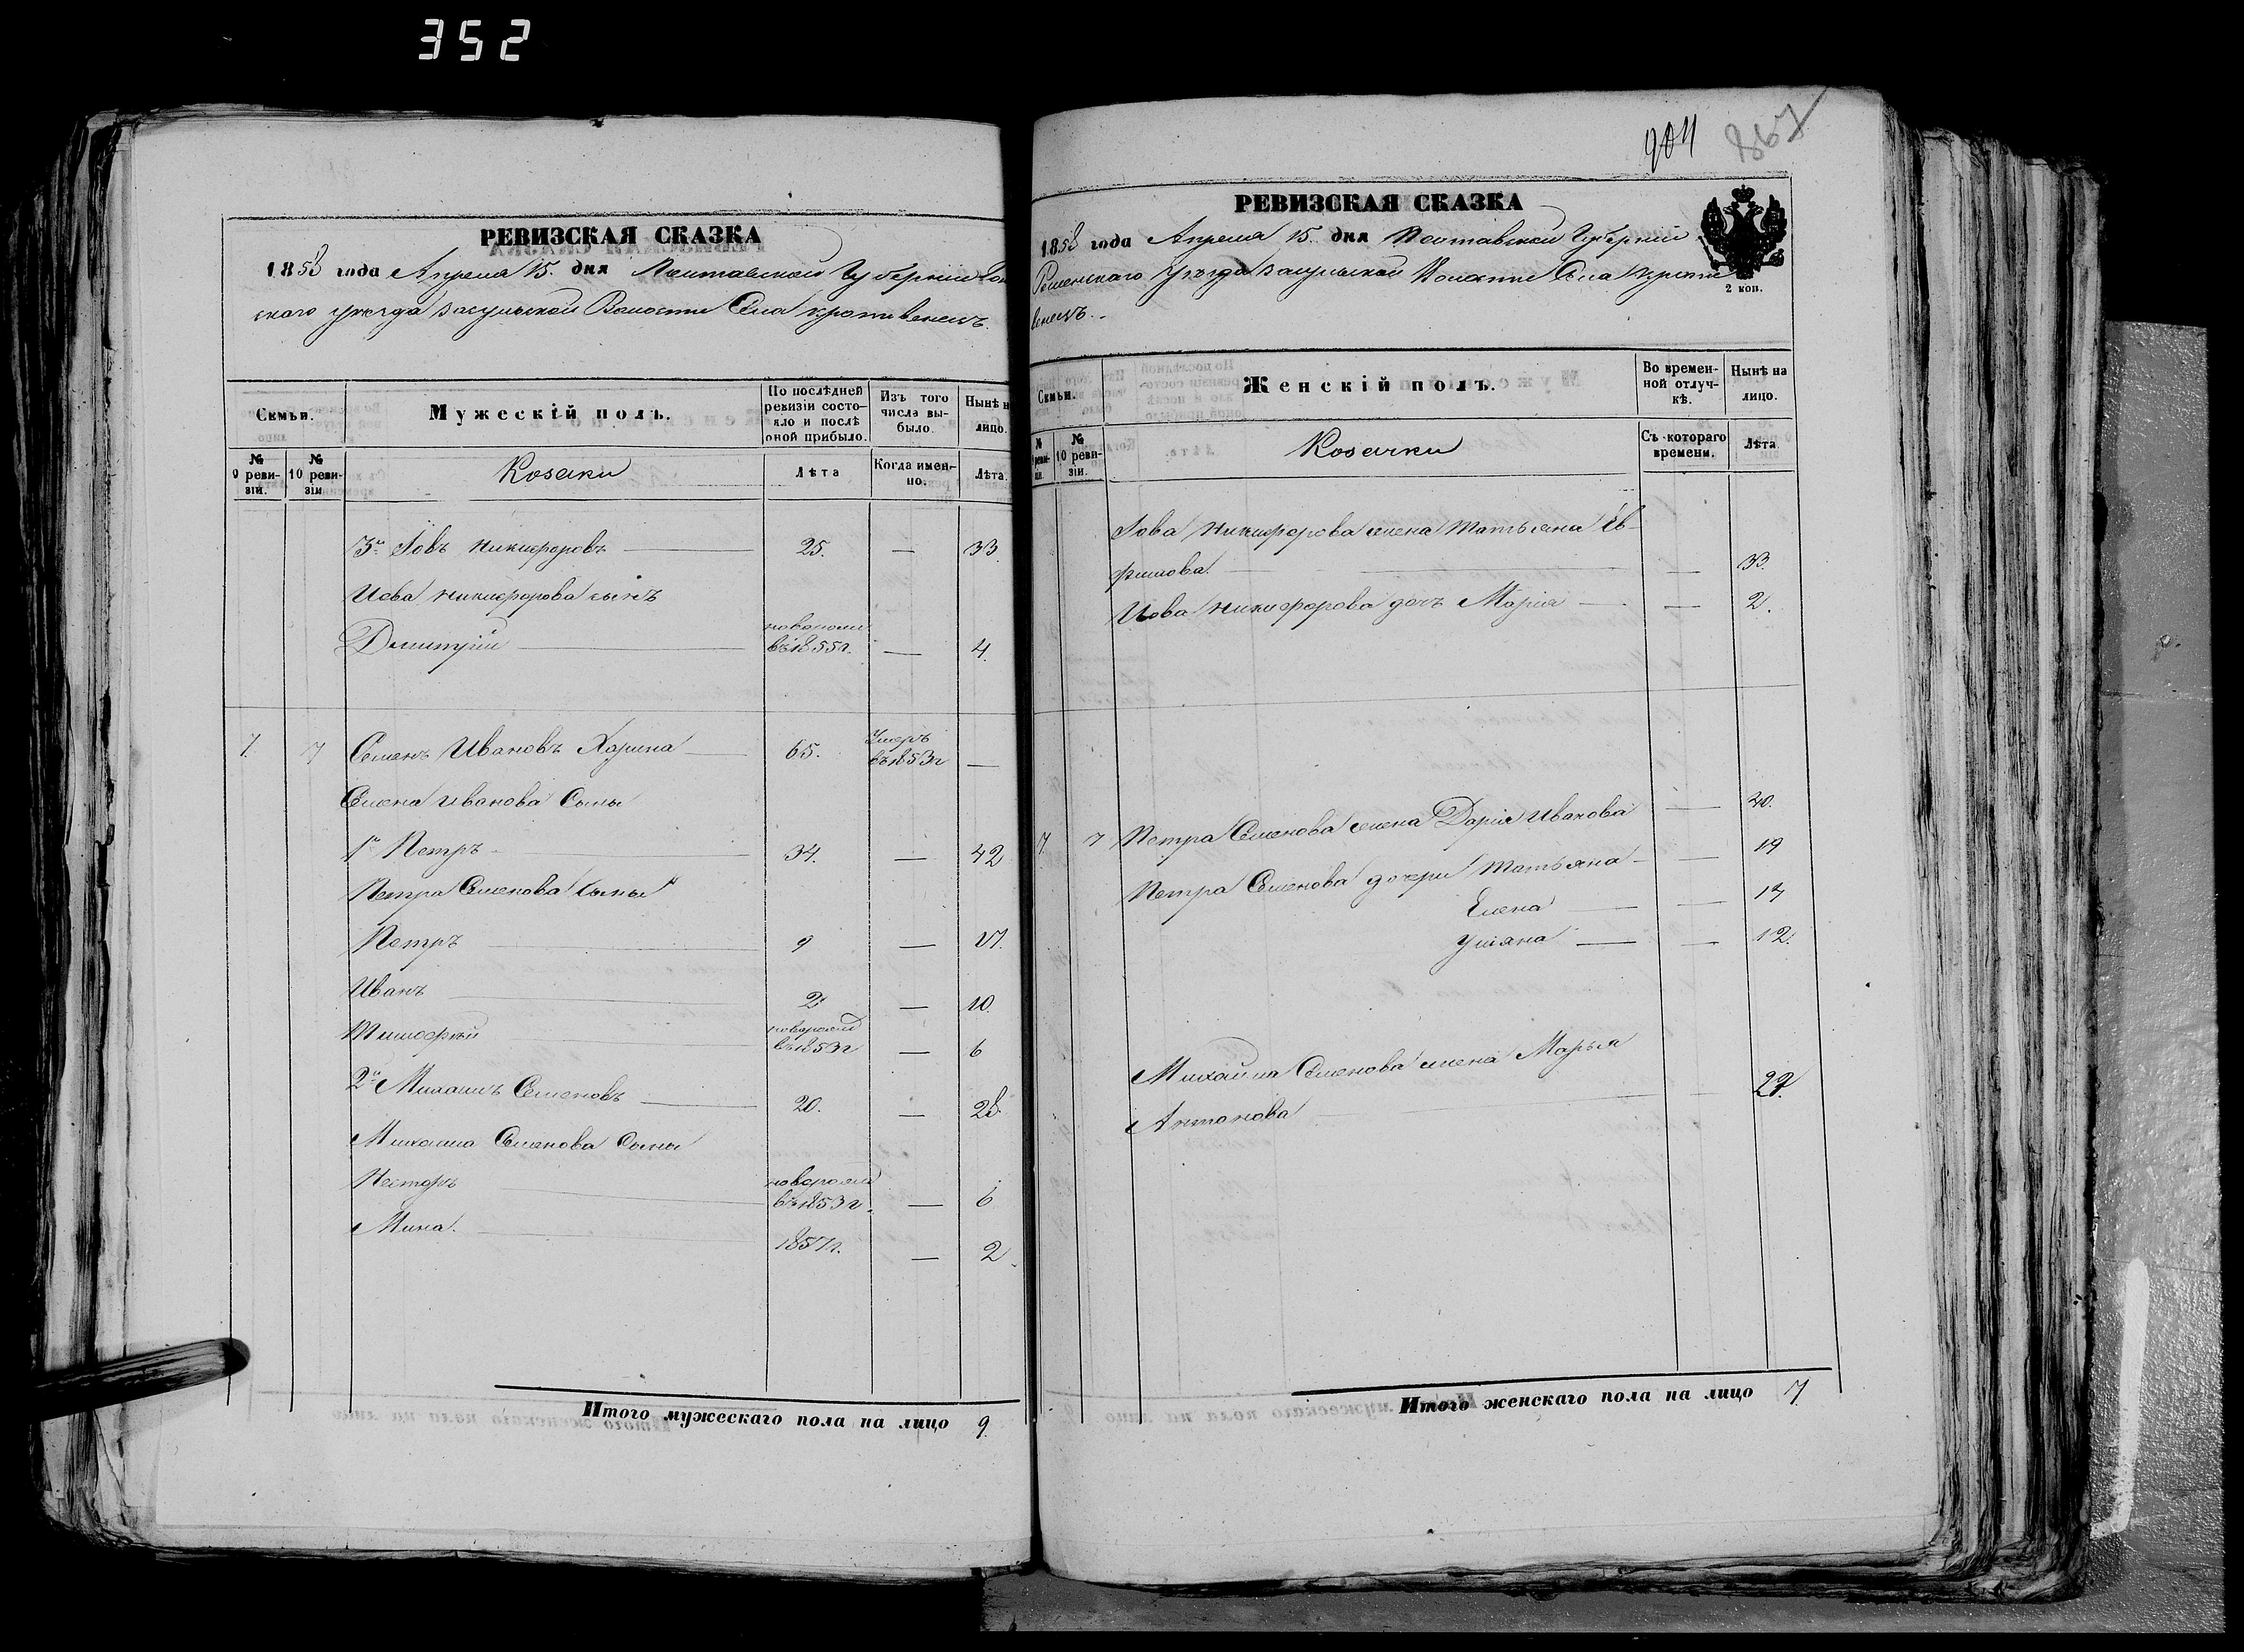 352
РЕВИЗСКАЯ СКАЗКА
1858 года Апреля 15. дня Полтавской Губерніи Ром
скаго уѣзда Засульской Волости Села Кропивенецъ.
Семьи.
Мужескій полъ.
По послѣдней ревизіи состояло и послѣ оной прибыло.
Изъ того числа выбыло.
Нынѣ н лицо.
№ 9 ревизіи.
№ 10 ревизіи
Козаки
Лѣта
Когда именно.
Лѣта.
3й Іовъ Никифоровъ 25. — 33
Иова Никифорова сынъ
Димитрій новорожд въ 1855г. — 4.
7. 7 Семенъ Ивановъ Харина 65. Умеръ въ 1853г —
Семена Иванова Сыны
1й Петръ 34. — 42
Петра Семенова Сыны
Петръ 9 — 17.
Иванъ 2 — 10.
Тимофѣй новорожд въ 1853г — 6
2й Михаилъ Семеновъ 20. — 28.
Михаила Семенова Сыны
Несторъ новорожд въ 1853г. — 6
Мина. 1857г. — 2
Итого мужескаго пола на лицо 9.
904 867
РЕВИЗСКАЯ СКАЗКА
1858 года Апреля 15. дня Полтавской Губерніи
Роменскаго уѣзда Засульской Волости Села Кропи
венецъ.
2 коп.
Семьи.
Женскій полъ.
Во временной отлучкѣ.
Нынѣ на лицо.
№ ревизіи.
№ 10 ревизіи.
Козачки
Съ котораго времени.
Лѣта
Іова Никифорова жена Татьяна Ев-
фимова. — 33.
Иова Никифорова дочь Марія — 2.
7. 7 Петра Семенова жена Дарія Иванова — 40.
Петра Семенова дочери Татьяна — 19
Елена — 14
Уліяна — 12.
Михайла Семенова жена Марья
Антонова — 27.
Итого женскаго пола на лицо 7